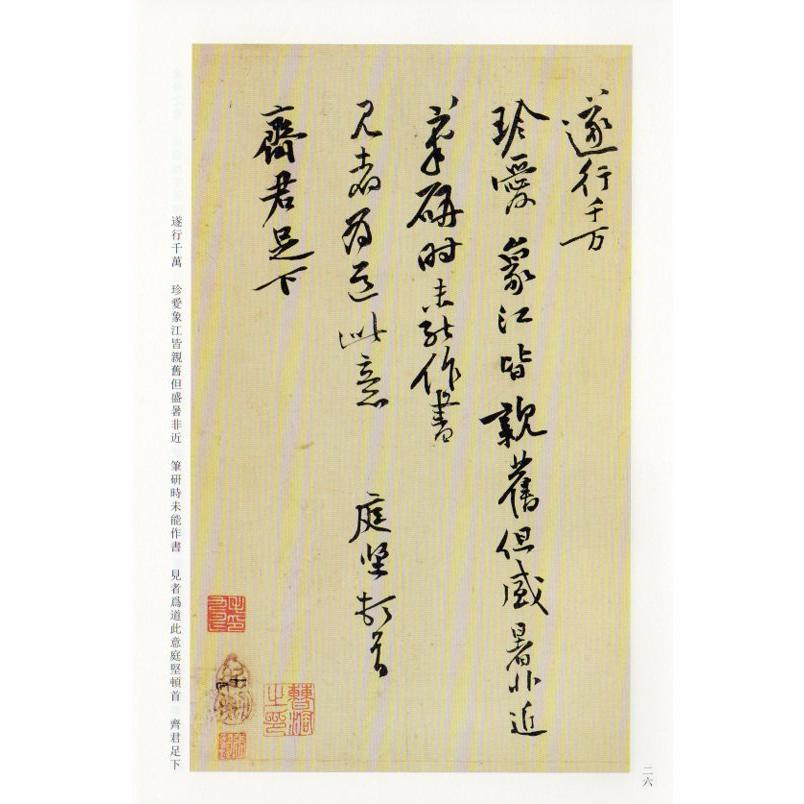 遂行千万
珍愛象江皆親舊但盛暑非近
筆研时未能作書
見者為道此意
庭堅頓首
齊君足下
遂行千萬 珍愛象江皆親舊但盛暑非近 筆研時未能作書 見者爲道此意庭堅頓首 齊君足下
二六